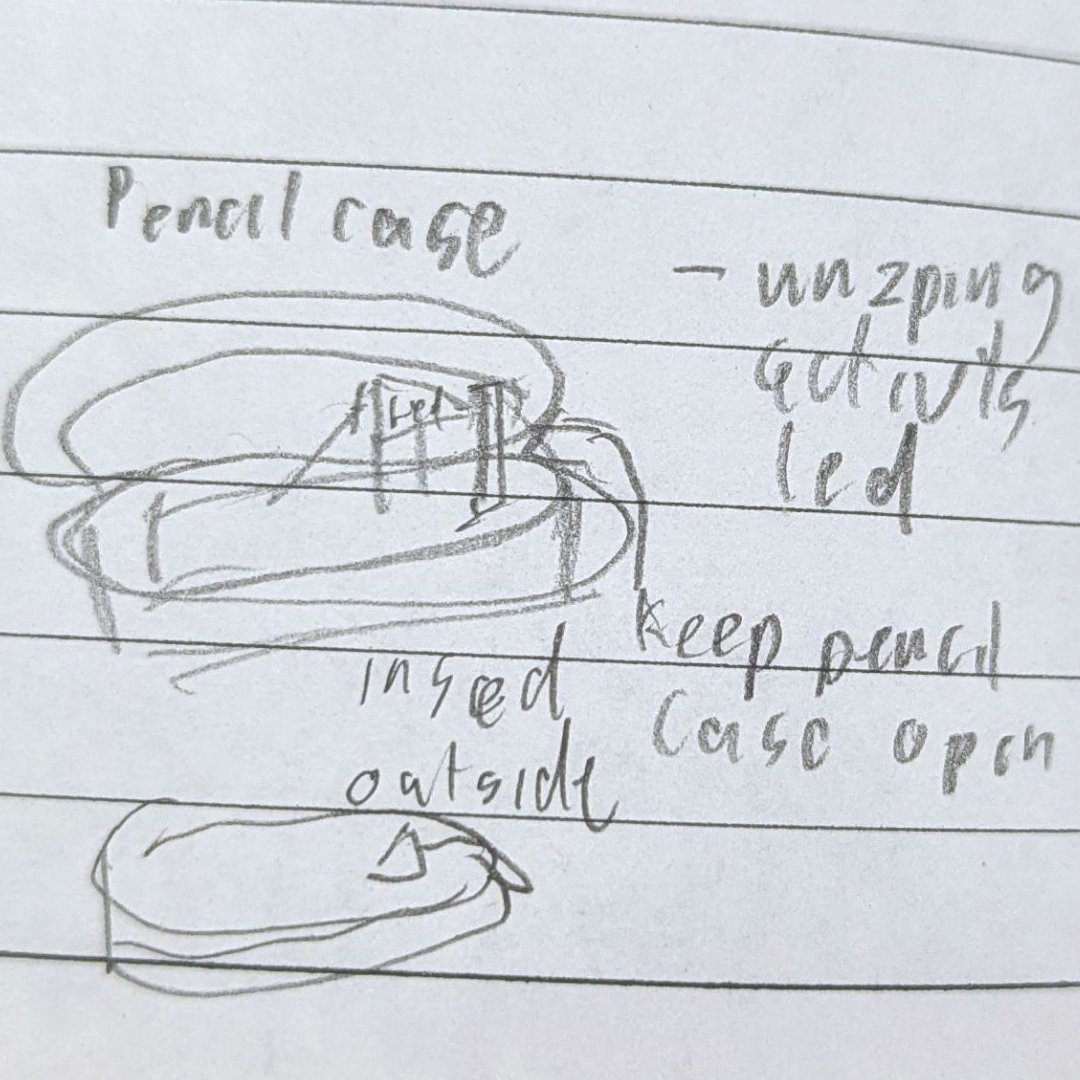 Pencil case
- unzping
activits
led
Led
keep pencil
case open
insed
outside